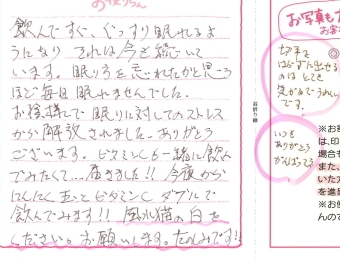 お便りらん
飲んですぐ、ぐっすり眠れるよ
うになり それは今も続いて
います。眠り方を忘れたかと思う
ほど毎日眠れませんでした。
お陰様で眠りに対してのストレス
から解放されました。ありがとう
ございます。ビタミンCも一緒に飲ん
でみたくて…届きました!! 今夜から
にんにく玉とビタミンC ダブルで
飲んでみます!! 風水猫の白を
ください。お願いします。たのしみです!!
切手を
はらずに出せる
のは とても
気がるでうれしい
です。
いつも
ありがとう
がんばってネ
お写真も
お客
※お
は、印
場合も
また、
いた方
を進呈
※お
んので